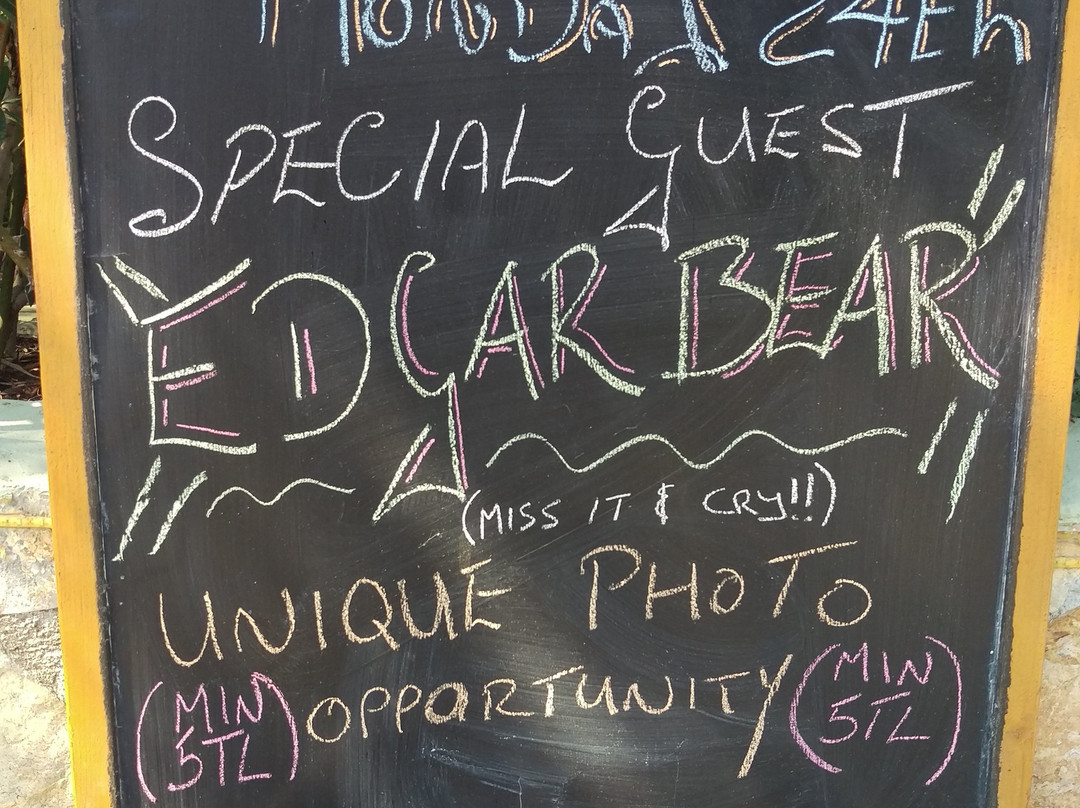 MONDAY 24th
SPECIAL GUEST
EDGAR BEAR
(MISS IT & CRY!!)
UNIQUE PHOTO
(MIN 5TL) OPPORTUNITY (MIN 5TL)